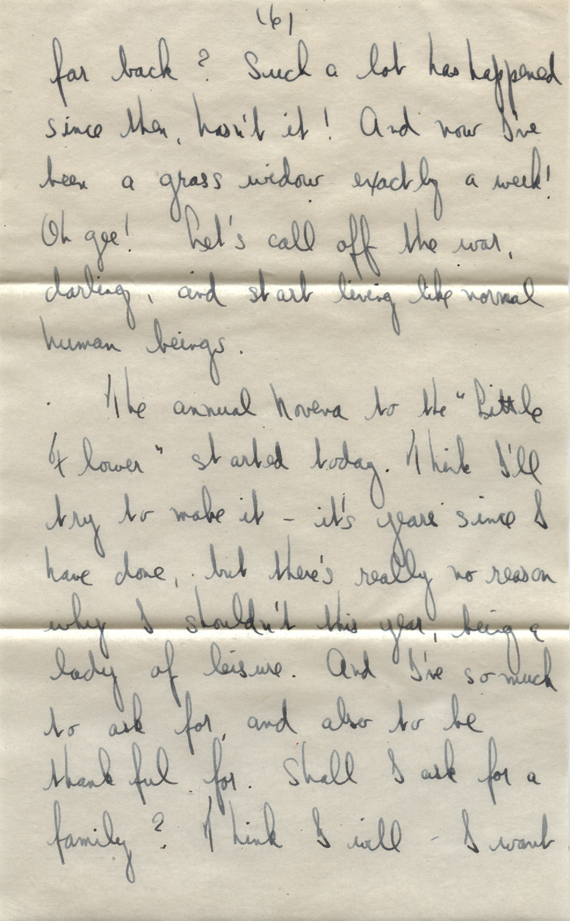 (6)
far back? Such a lot has happened
since then, hasn't it! And now I've
been a grass widow exactly a week!
Oh gee! Let's call off the war,
darling, and start living like normal
human beings.
The annual Novena to the "Little
Flower" started today. Think I'll
try to make it - it's years since I
have done, but there's really no reason
why I shouldn't this year, being a
lady of leisure. And I've so much
to ask for, and also to be
thankful for. Shall I ask for a
family? Think I will - I want